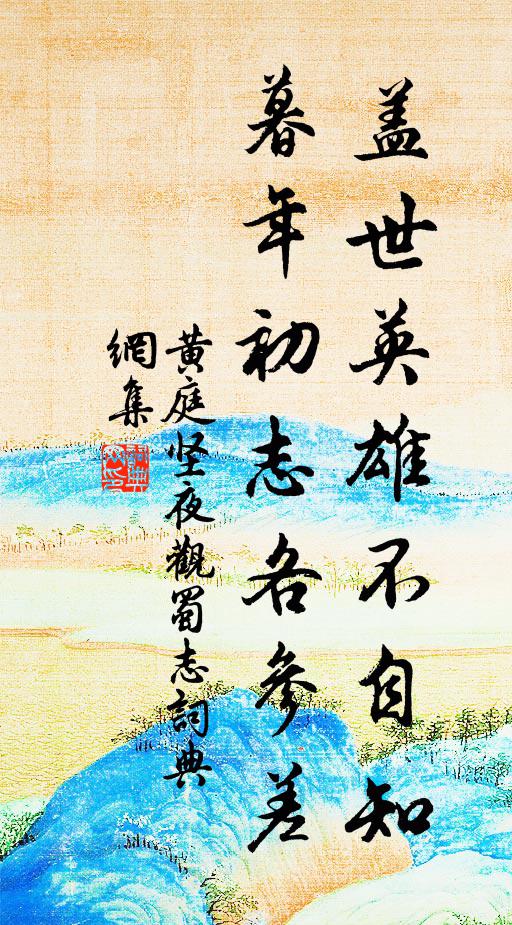 盖世英雄不自知
暮年初志各參差
黄庭坚夜觀蜀志詞典
網集